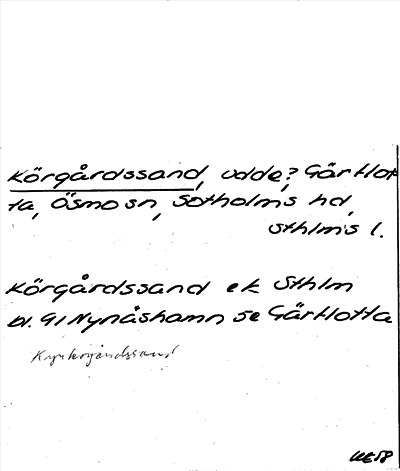 Körgårdssand, udde? Gärflot
ta, Ösmo sn, Sotholms hd,
Sthlms l.
Körgårdssand ek Sthlm
bl. 91 Nynäshamn se Gärflotta
Kyrkogårdssand
58